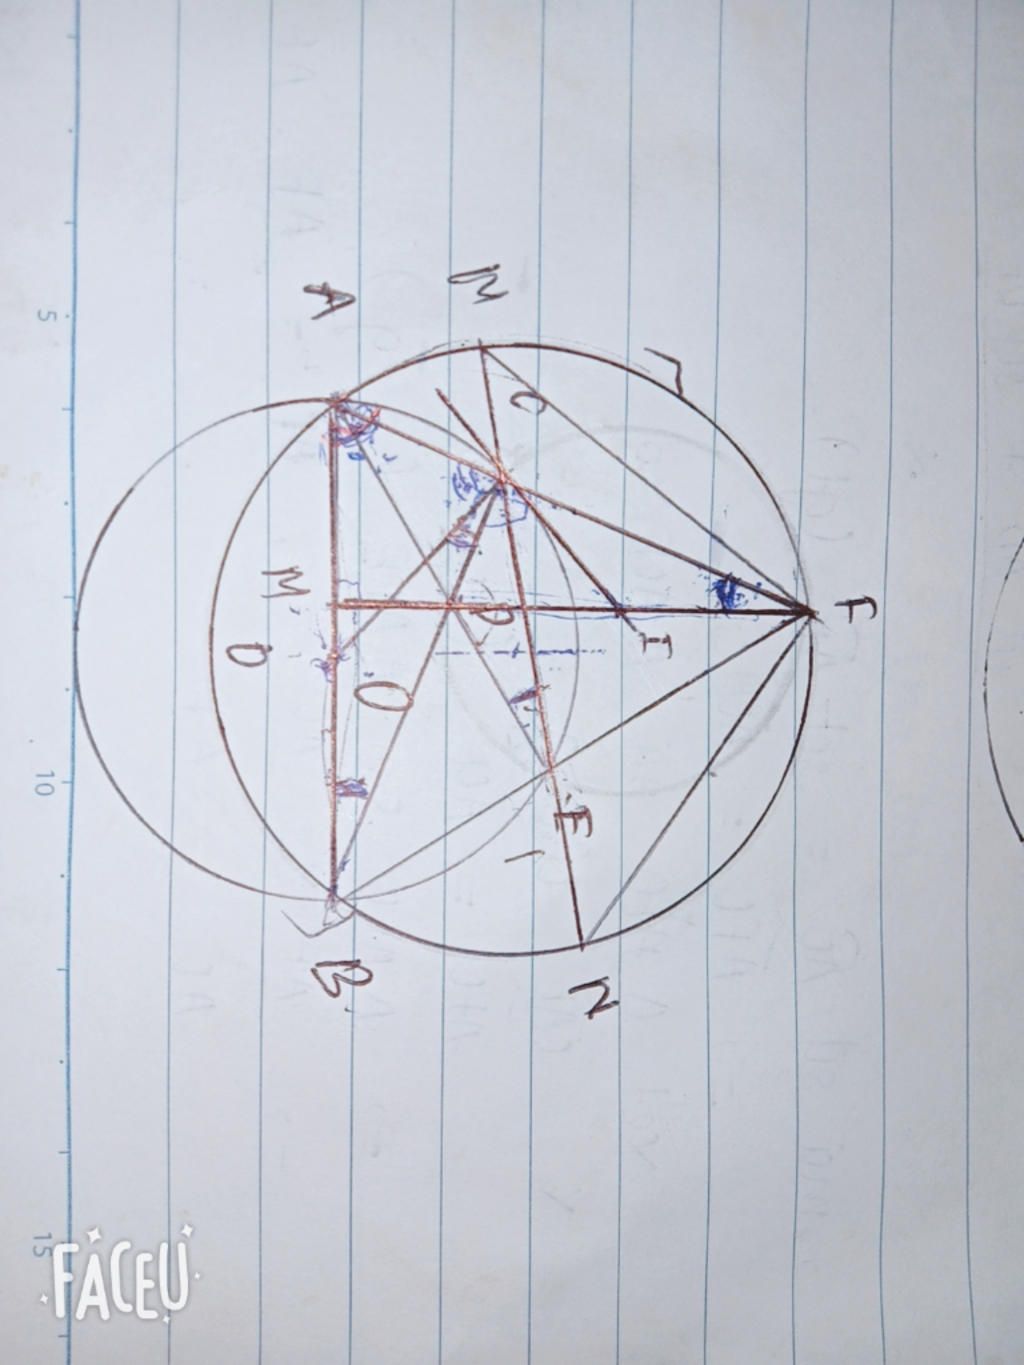 A
M
C
F
M
D
P
I
O
E
B
N
5
10
15
FACEU